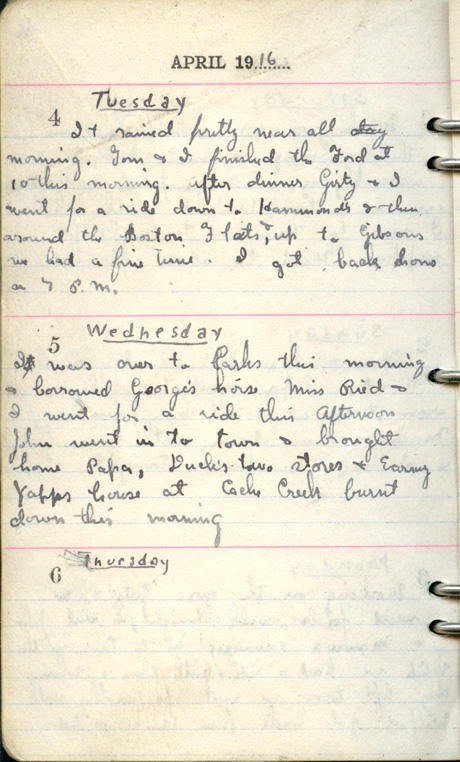 APRIL 1916
4 Tuesday
It rained pretty near all day
morning. Tom & I finished the Ford at
10 this morning. after dinner Girty & I
went for a ride down to Hammonds & then
around the Boston Flats, up to Gibsons
we had a fine time. I got back home
a 7 P.M.
5 Wednesday
I was over to Parks this morning
& borrowed Georges horse Miss Ried &
I went for a ride this Afternoon
John went in to town & brought
home Papa, Ducks two stores &
Yapps house at Cache Creek burnt
down this morning
6 Thursday